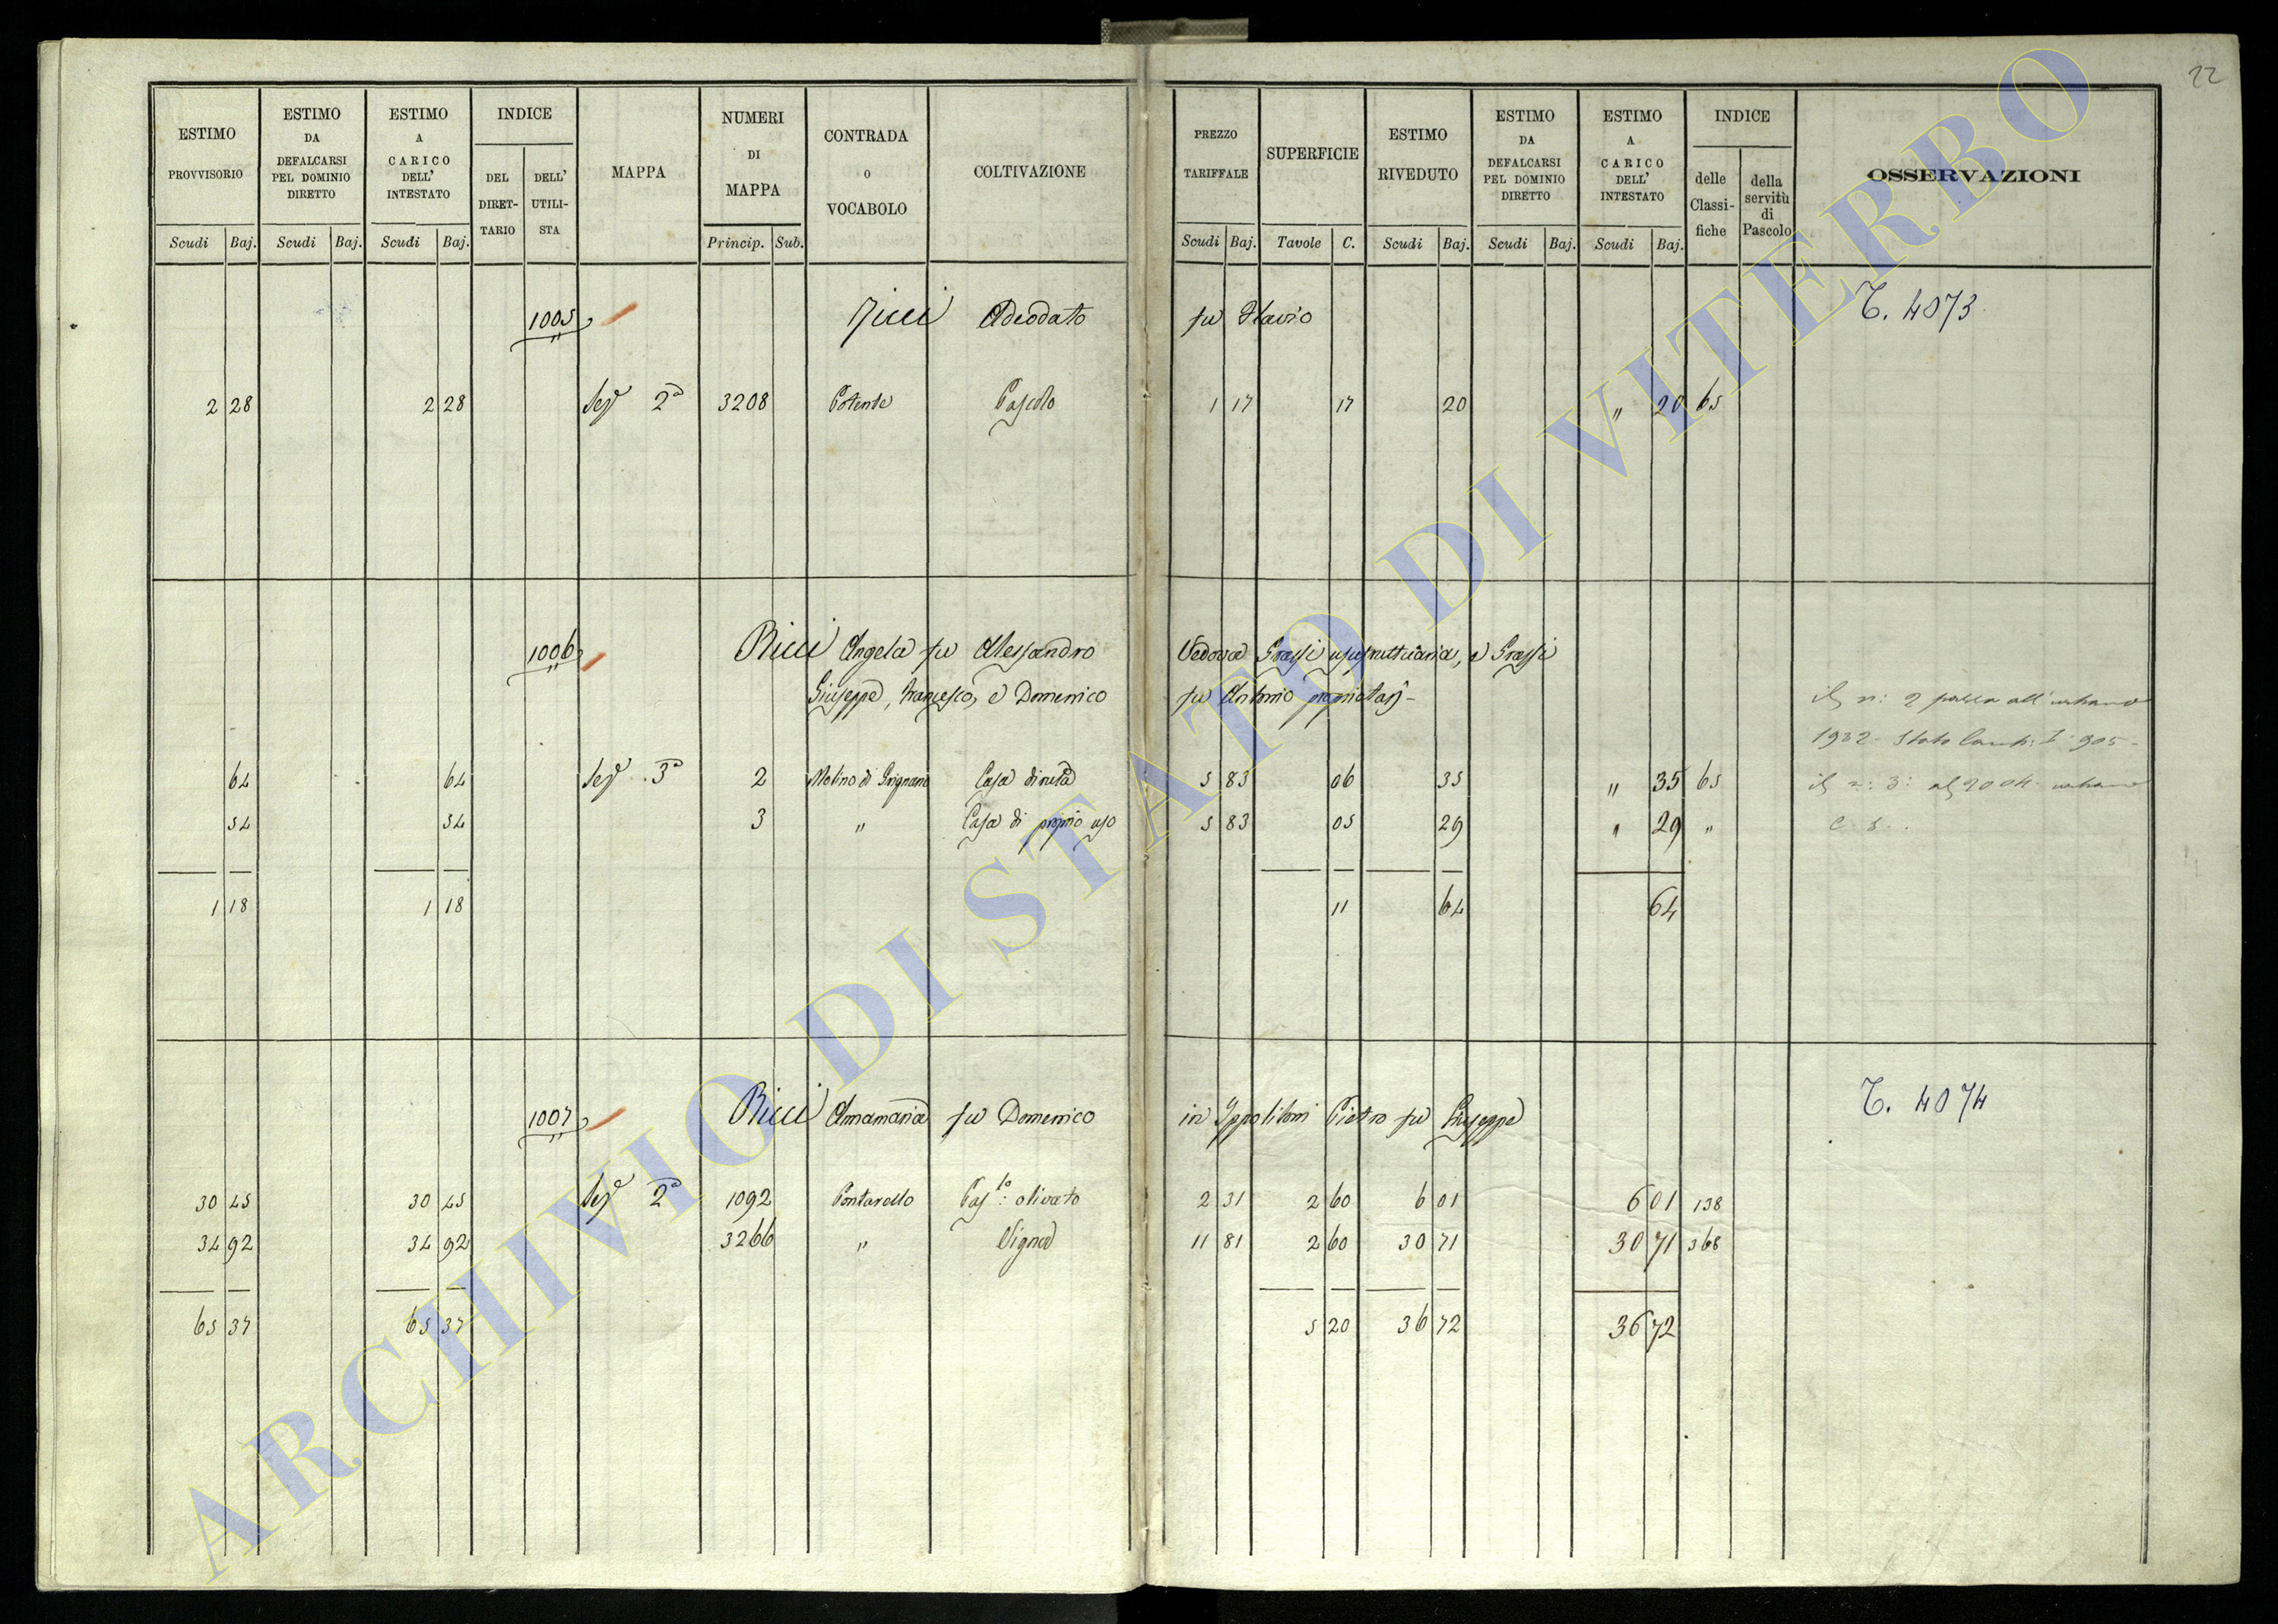 22
ESTIMO PROVVISORIO
ESTIMO DA DEFALCARSI PEL DOMINIO DIRETTO
ESTIMO A CARICO DELL' INTESTATO
INDICE
DEL DIRET-TARIO
DELL' UTILI-STA
MAPPA
NUMERI DI MAPPA
CONTRADA O VOCABOLO
COLTIVAZIONE
PREZZO TARIFFALE
SUPERFICIE
ESTIMO RIVEDUTO
ESTIMO DA DEFALCARSI PEL DOMINIO DIRETTO
ESTIMO A CARICO DELL' INTESTATO
INDICE
delle Classi-fiche
della servitù di Pascolo
OSSERVAZIONI
Scudi Baj. Scudi Baj. Scudi Baj. Princip. Sub. Scudi Baj. Tavole C. Scudi Baj. Scudi Baj. Scudi Baj.
1005 Ricci Adeodato fu Flavio T. 4073
2 28 2 28 Sez 2a 3208 Potente Pascolo 1 17 17 20 " 20 65
1006 Ricci Angela fu Alessandro Vedova Grassi usufruttuaria, e Grassi
Giuseppe, Francesco, e Domenico fu Antonio proprietarj -
il n: 2 passa all' urbano
1932 - Stato I 905 -
64 64 Sez 3a 2 Molino di Grignano Casa diruta 5 83 06 35 " 35 65 il n: 3: al 2004 urbano
54 54 3 " Casa di proprio uso 5 83 05 29 " 29 " c. s.
1 18 1 18 11 64 64
1007 Ricci Annamaria fu Domenico in Ippolitoni Pietro fu Giuseppe T. 4074
30 45 30 45 Sez 2a 1092 Pontarello Pas.lo: olivato 2 31 2 60 6 01 6 01 138
34 92 34 92 3266 " Vigna 11 81 2 60 30 71 30 71 368
65 37 65 37 5 20 36 72 36 72
ARCHIVIO DI STATO DI VITERBO